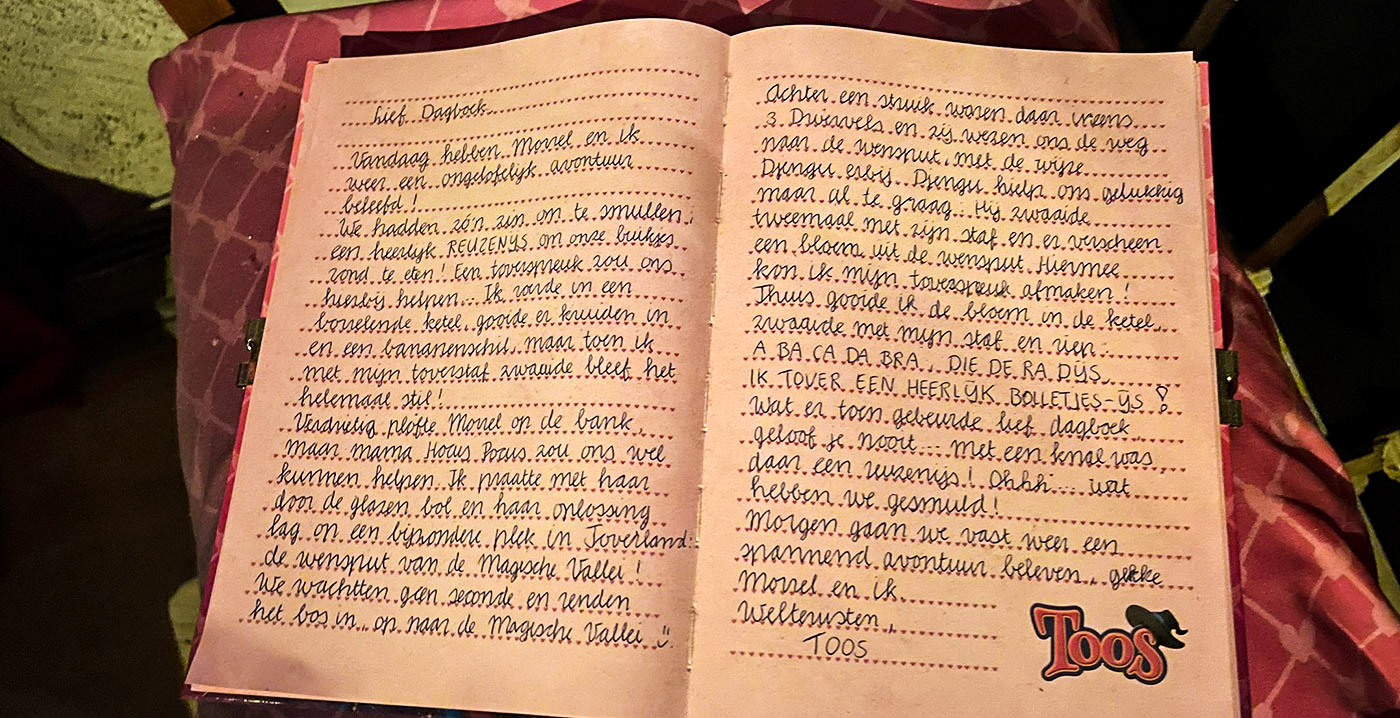 Lief Dagboek
Vandaag hebben Morrel en ik
weer een ongelofelijk avontuur
beleefd!
We hadden zó'n zin om te smullen:
een heerlijk REUZENIJS om onze buikjes
rond te eten! Een toverspreuk zou ons
hierbij helpen... Ik roerde in een
borrelende ketel, gooide er kruiden in
en een bananenschil, maar toen ik
met mijn toverstaf zwaaide bleef het
helemaal stil!
Verdrietig plofte Morrel op de bank,
maar mama Hocus Pocus zou ons wel
kunnen helpen. Ik praatte met haar
door de glazen bol en haar oplossing
lag op een bijzondere plek in Toverland:
de wensput van de Magische Vallei!
We wachtten geen seconde en renden
het bos in, op naar de Magische Vallei
Achter een struik waren daar ineens
3 Dwervels en zij wezen ons de weg
naar de wensput, met de wijze
Djengu erbij. Djengu hielp ons gelukkig
maar al te graag. Hij zwaaide
tweemaal met zijn staf en er verscheen
een bloem uit de wensput. Hiermee
kon ik mijn toverspreuk afmaken!
Thuis gooide ik de bloem in de ketel,
zwaaide met mijn staf en riep:
A BA CA DA BRA, DIE DE RA DIJS
IK TOVER EEN HEERLIJK BOLLETJES-IJS!
Wat er toen gebeurde lief dagboek,
geloof je nooit... Met een knal was
daar een reuzenijs! Ohhh.... wat
hebben we gesmuld!
Morgen gaan we vast weer een
spannend avontuur beleven, gekke
Morrel en ik.
Welterusten,
TOOS
Toos